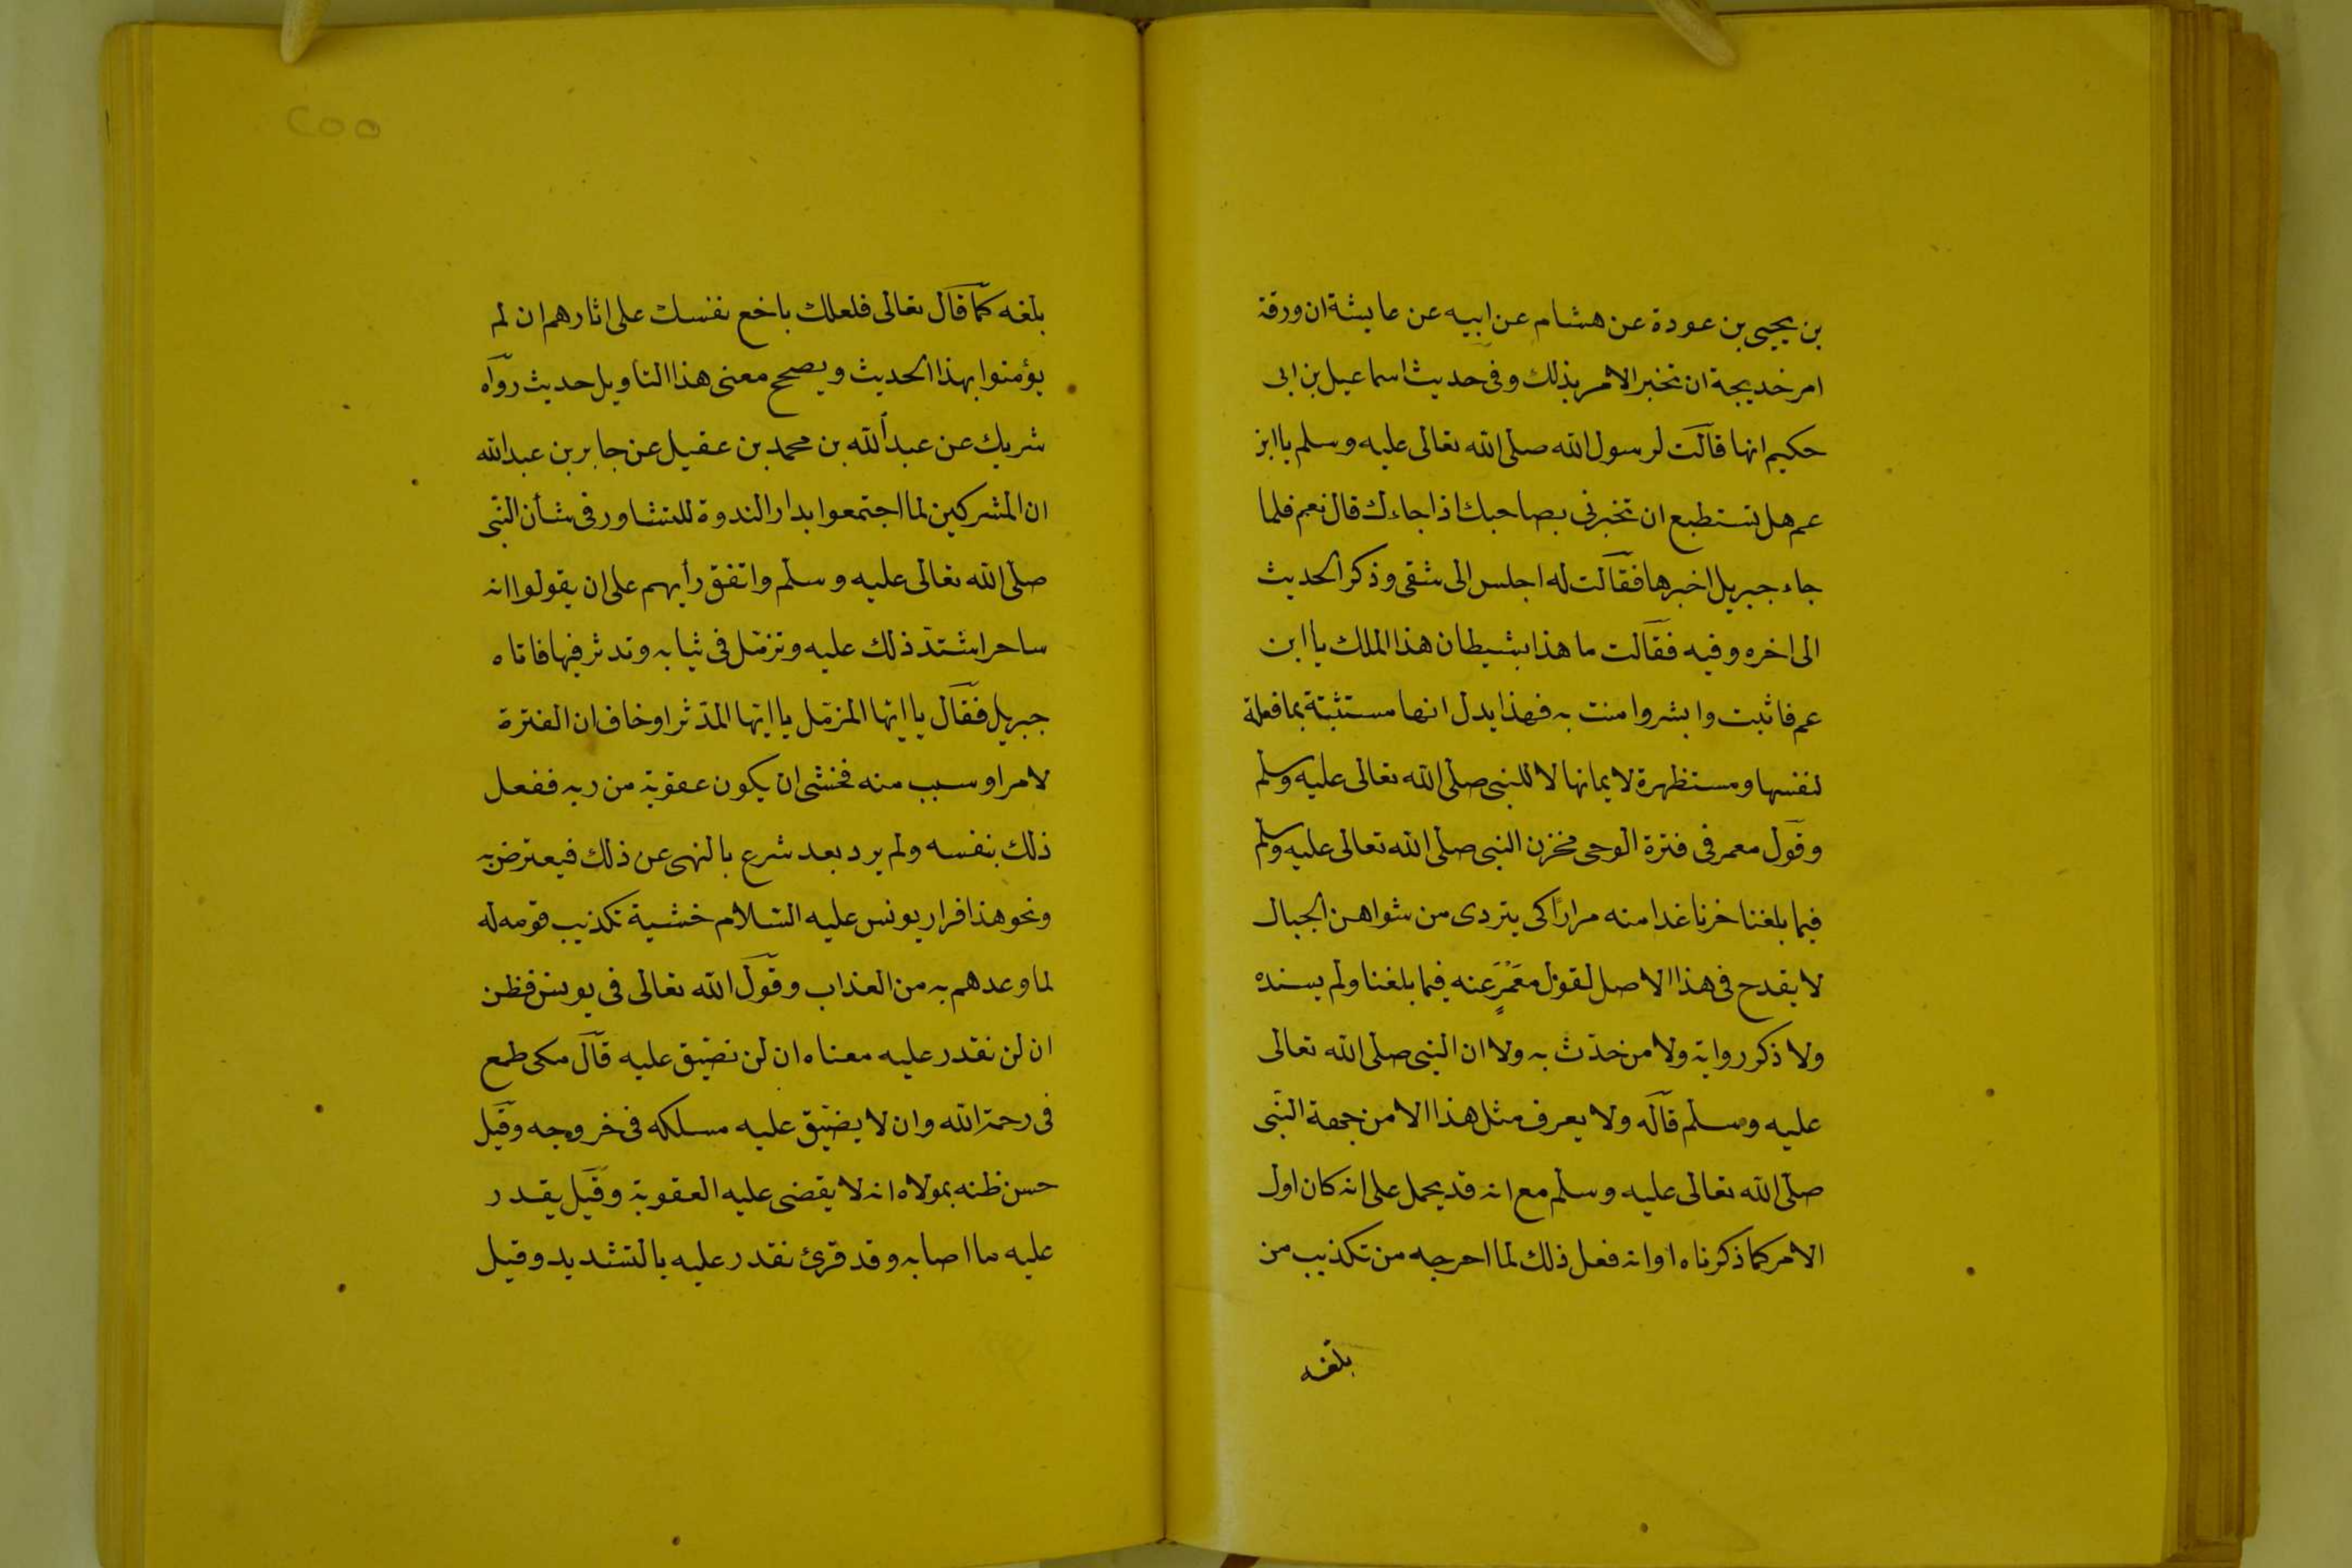 بن يحيى بن عودة عن هشام عن ابيه عن عايشة ان ورقة
امر خديجة ان تخبر الامر بذلك وفى حديث اسماعيل بن ابى
حكيم انها قالت لرسول الله صلى الله تعالى عليه وسلم يا ابن
عم هل تستطيع ان تخبرنى بصاحبك اذا جاءك قال نعم فلما
جاء جبريل اخبرها فقالت له اجلس الى شقى وذكر الحديث
الى اخره وفيه فقالت ما هذا بشيطان هذا الملك يا ابن
عم فاثبت وابشر وامنت به فهذا يدل انها مستثبتة بما فعلة
لنفسها ومستظهرة لايمانها لا للنبى صلى الله تعالى عليه وسلم
وقول معمر فى فترة الوحى فخزن النبى صلى الله تعالى عليه وسلم
فيما بلغنا خرنا غدا منه مرارًا كى يتردى من شواهن الجبال
لا يقدح فى هذا الاصل لقول مَعْمَرٍ عنه فيما بلغنا ولم يسنده
ولا ذكر رواية ولا من خدّث به ولا ان النبى صلى الله تعالى
عليه وسلم قاله ولا يعرف مثل هذا الا من جهة النّبى
صلى الله تعالى عليه وسلم مع انه قد يحمل على انه كان اول
الامر كما ذكرناه او انه فعل ذلك لما احرجه من تكذيب من
بلغه
٢٥٥
بلغه كما قال تعالى فلعلك باخع نفسك على اثارهم ان لم
يؤمنوا بهذا الحديث ويصحح معنى هذا التاويل حديث رواه
شريك عن عبد الله بن محمد بن عقيل عن جابر بن عبد الله
ان المشركين لما اجتمعوا بدار الندوة للتشاور فى شأن النّبى
صلى الله تعالى عليه وسلم واتفق رأيهم على ان يقولوا انه
ساحر اشتدّ ذلك عليه وتزمّل فى ثيابه وتدثر فيها فاتاه
جبريل فقال يا ايّها المزمّل يا ايّها المدّثر او خاف ان الفترة
لامر او سبب منه فخشى ان يكون عقوبة من ربه ففعل
ذلك بنفسه ولم يرد بعد شرع بالنهى عن ذلك فيعترض به
ونحو هذا فرار يونس عليه السّلام خشية تكذيب قومه له
لما وعدهم به من العذاب وقول الله تعالى فى يونس فظن
ان لن نقدر عليه معناه ان لن نضيّق عليه قال مكى طمع
فى رحمة الله وان لا يضيّق عليه مسلكه فى خروجه وقيل
حسن ظنه بمولاه انه لا يقضى عليه العقوبة وقيل يقدر
عليه ما اصابه وقد قرئ نقدر عليه بالتشديد وقيل